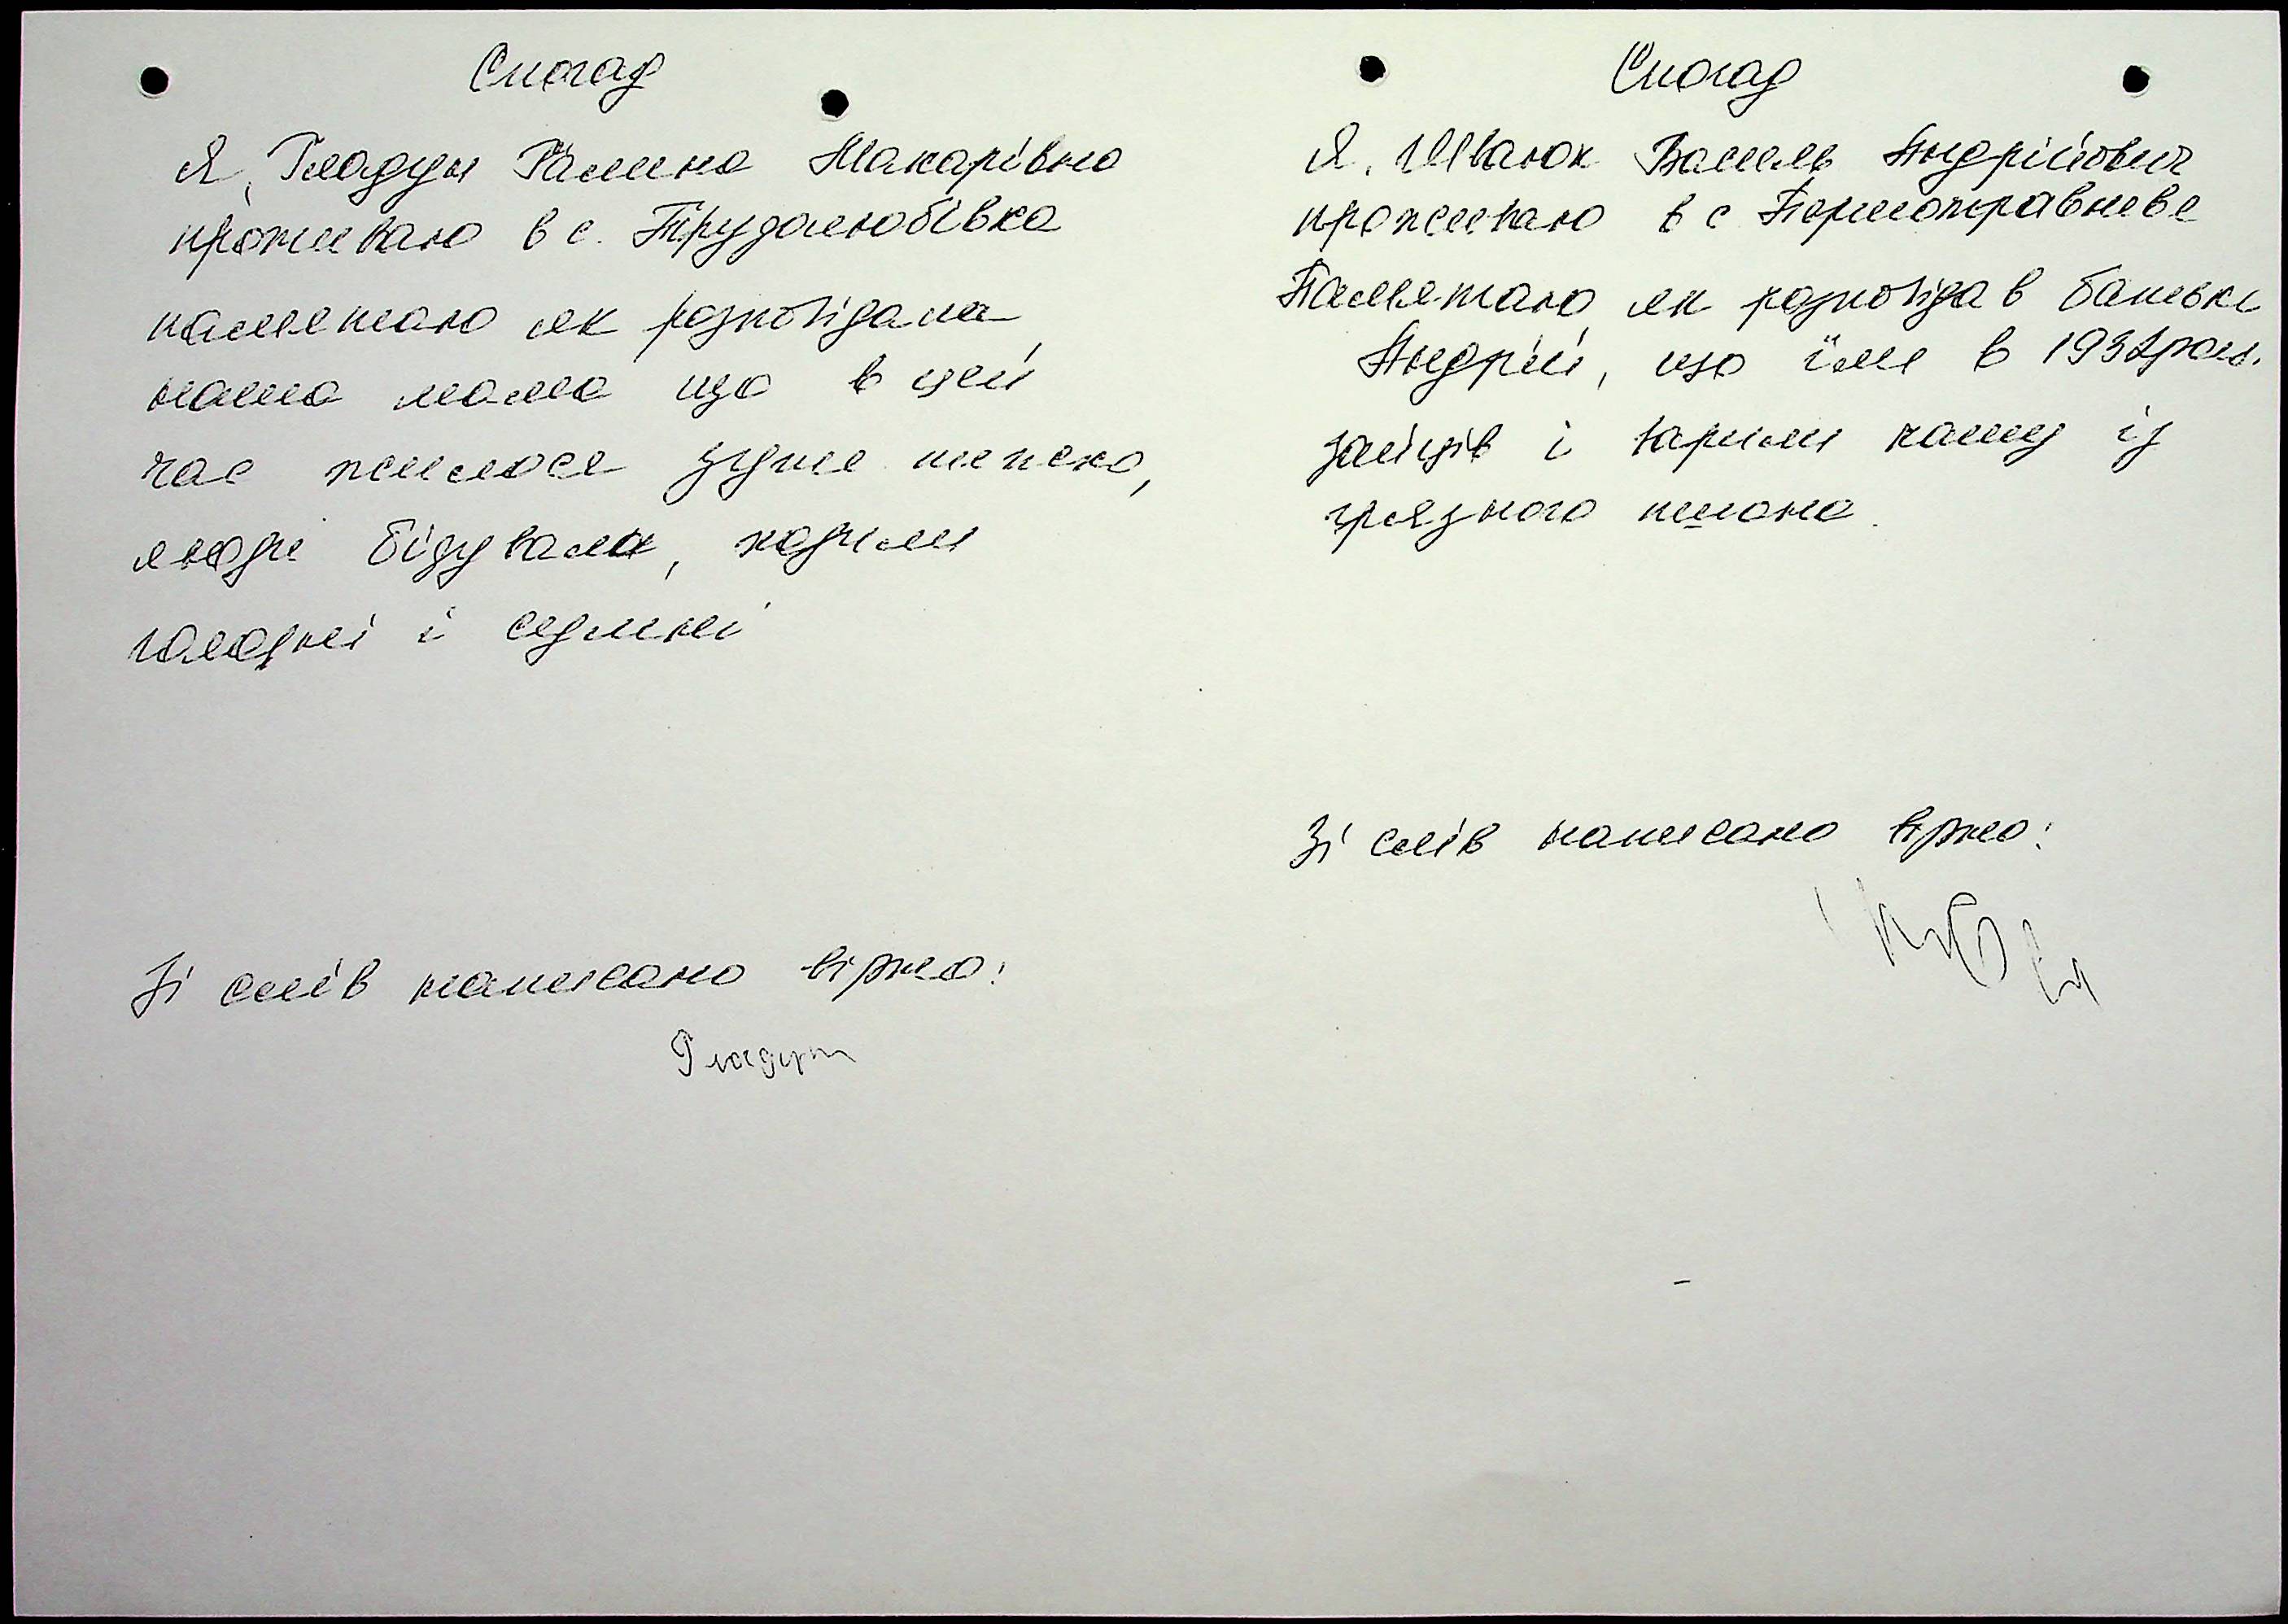 Спогад
Я, Гладун Галина Макарівна
проживаю в с. Трудолюбівка
памятаю як розповідала
наша мама що в цей
час жилося дуже тяжко,
люди бідували, ходили
голодні і сумні
Зі слів написано вірно:
Гладун
Спогад
Я, Шванюк Василь Андрійович
проживаю в с Першотравневе
Памятаю як розповідав батько
Андрій, що їли в 1932 році.
зайців і варили кашу із
грязного пшона.
Зі слів написано вірно: